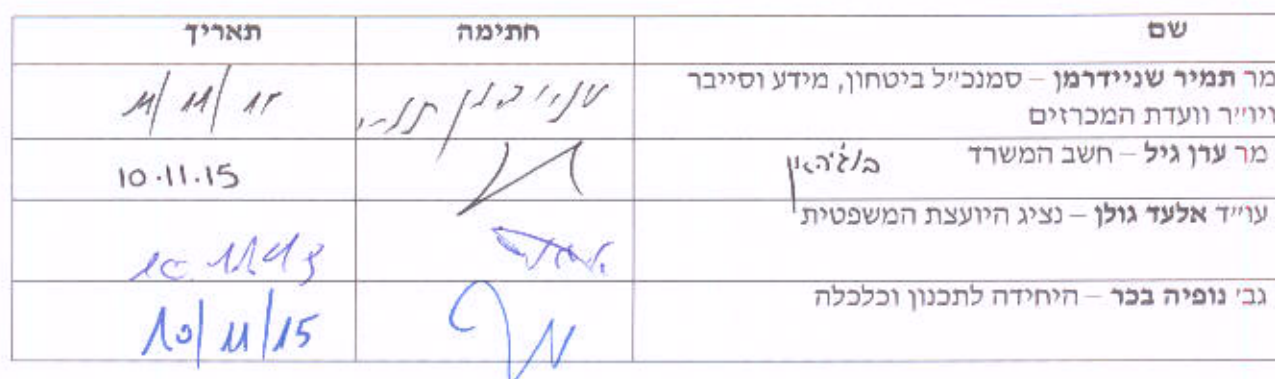 שם חתימה תאריך
מר תמיר שניידרמן – סמנכ״ל ביטחון, מידע וסייבר
ויו״ר וועדת המכרזים
שניידרמן תמיר 11/11/15
מר ערן גיל – חשב המשרד
10.11.15
עו״ד אלעד גולן – נציג היועצת המשפטית
גב׳ נופיה בכר – היחידה לתכנון וכלכלה
10/11/15